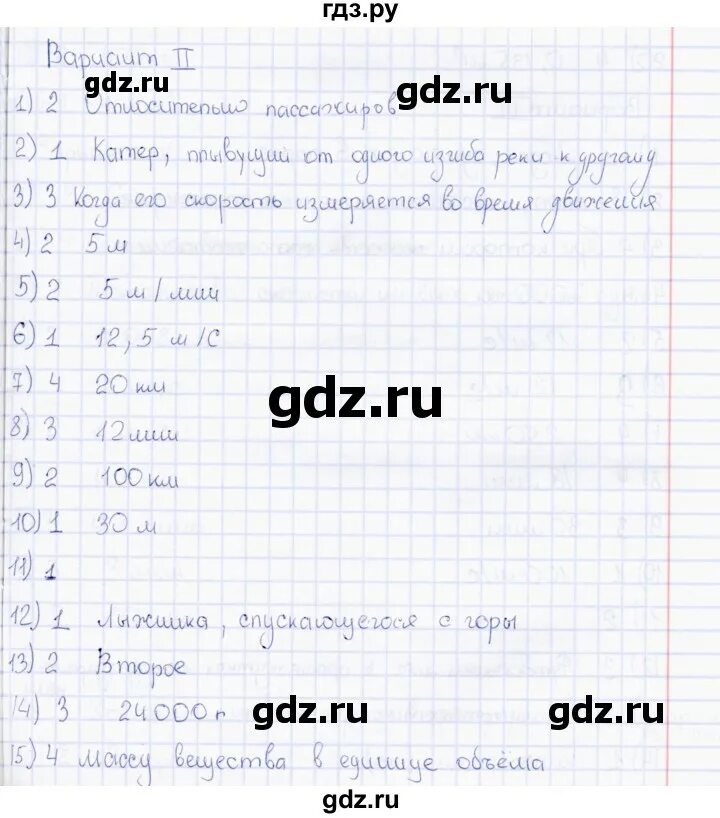 гдз.ру
Вариант II
gdz.ru
gdz.ru
1) 2 Относительно пассажиров
2) 1 Катер, плывущий от одного изгиба реки к другому
3) 3 Когда его скорость измеряется во время движения
4) 2 5 м
5) 2 5 м/мин
6) 1 12,5 м/с
7) 4 20 км
gdz.ru
8) 3 12 мин
9) 2 100 км
10) 1 30 м
11) 1
12) 1 Лыжника, спускающегося с горы
13) 2 Второе
14) 3 24000 г
gdz.ru
gdz.ru
15) 4 массу вещества в единице объёма
gdz.ru